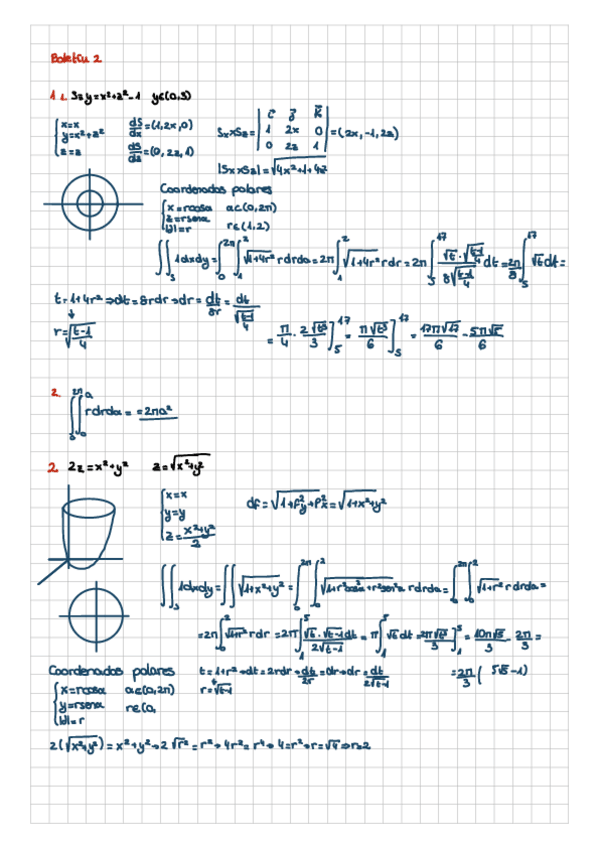 Boletín 2
1 1. S≡ y=x²+z²-1 y∈(0,3)
{x=x y=x²+z² z=z
dS/dx=(1,2x,0)
dS/dz=(0,2z,1)
Sx×Sz=| i j k 1 2x 0 0 2z 1 |=(2x,-1,2z)
|Sx×Sz|=√4x²+1+4z²
Coordenadas polares
{x=rcosα α∈(0,2π)
z=rsenα r∈(1,2)
|J|=r
∬_S 1dxdy=∫_0^2π ∫_1^2 √1+4r² rdrdα=2π∫_1^2 √1+4r² rdr=2π∫_5^17 √t·√(t-1)/4 / 8√(t-1)/4 dt=2π/8 ∫_5^17 √t dt=
t=1+4r²→dt=8rdr→dr=dt/8r=dt/√(t-1)/4
↓
r=√(t-1)/4
=π/4·2√t³/3]_5^17=π√t³/6]_5^17=17π√17/6-5π√5/6
2.
∬_S rdrdα= =2πa²
2 2z=x²+y² z=√x²+y²
{x=x y=y z=x²+y²/2
df=√1+f²y+f²x=√1+x²+y²
∬_S 1dxdy=∬√1+x²+y²=∫_0^2π ∫_0^2 √1+r²cos²α+r²sen²α rdrdα=∫_0^2π ∫_0^2 √1+r² rdrdα=
=2π∫_0^2 √1+r² rdr=2π∫_1^5 √t·√t-1dt/2√t-1=π∫_1^5 √t dt=2π√t³/3]_1^5=10π√5/3-2π/3=
Coordenadas polares
t=1+r²→dt=2rdr→dt/2r=dr→dr=dt/2√t-1
r=√t-1
=2π/3(5√5-1)
{x=rcosα α∈(0,2π)
y=rsenα r∈(0,
|J|=r
2(√x²+y²)=x²+y²→2√r²=r²→4r²=r⁴→4=r²→r=√4→r=2